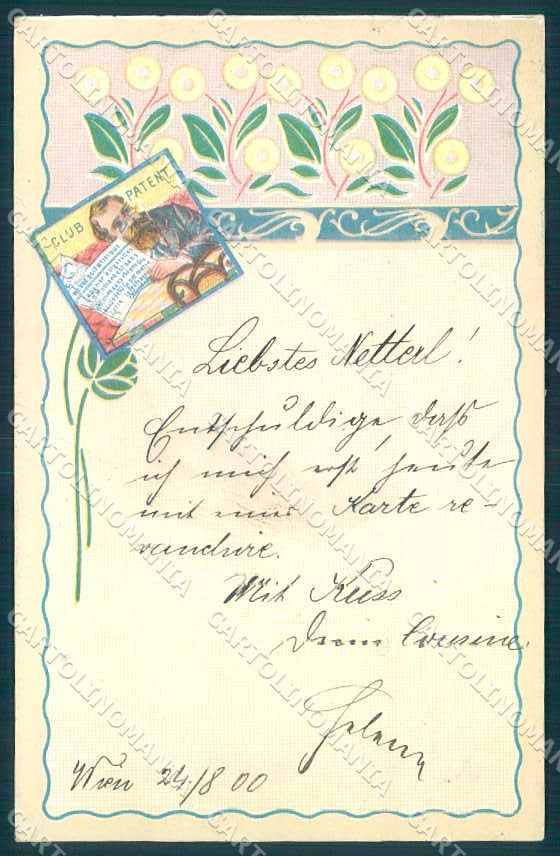 CLUB PATENT
Liebstes Netterl!
Entschuldige, daß
ich mich erst heute
mit einer Karte re-
vanchire.
Mit Kuss
Deine Cousine
Helene
Wien 24/8 00
CARTOLINOMANIA